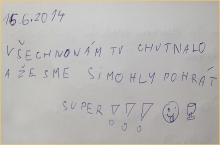 16.6.2014
VŠECHNO NÁM TU CHUTNALO
A ŽE SME SI MOHLY POHRÁT
SUPER !!!